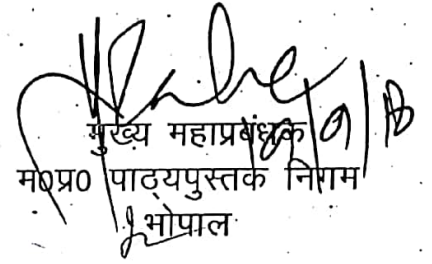 मुख्य महाप्रबंधक
म०प्र० पाठ्यपुस्तक निगम
भोपाल